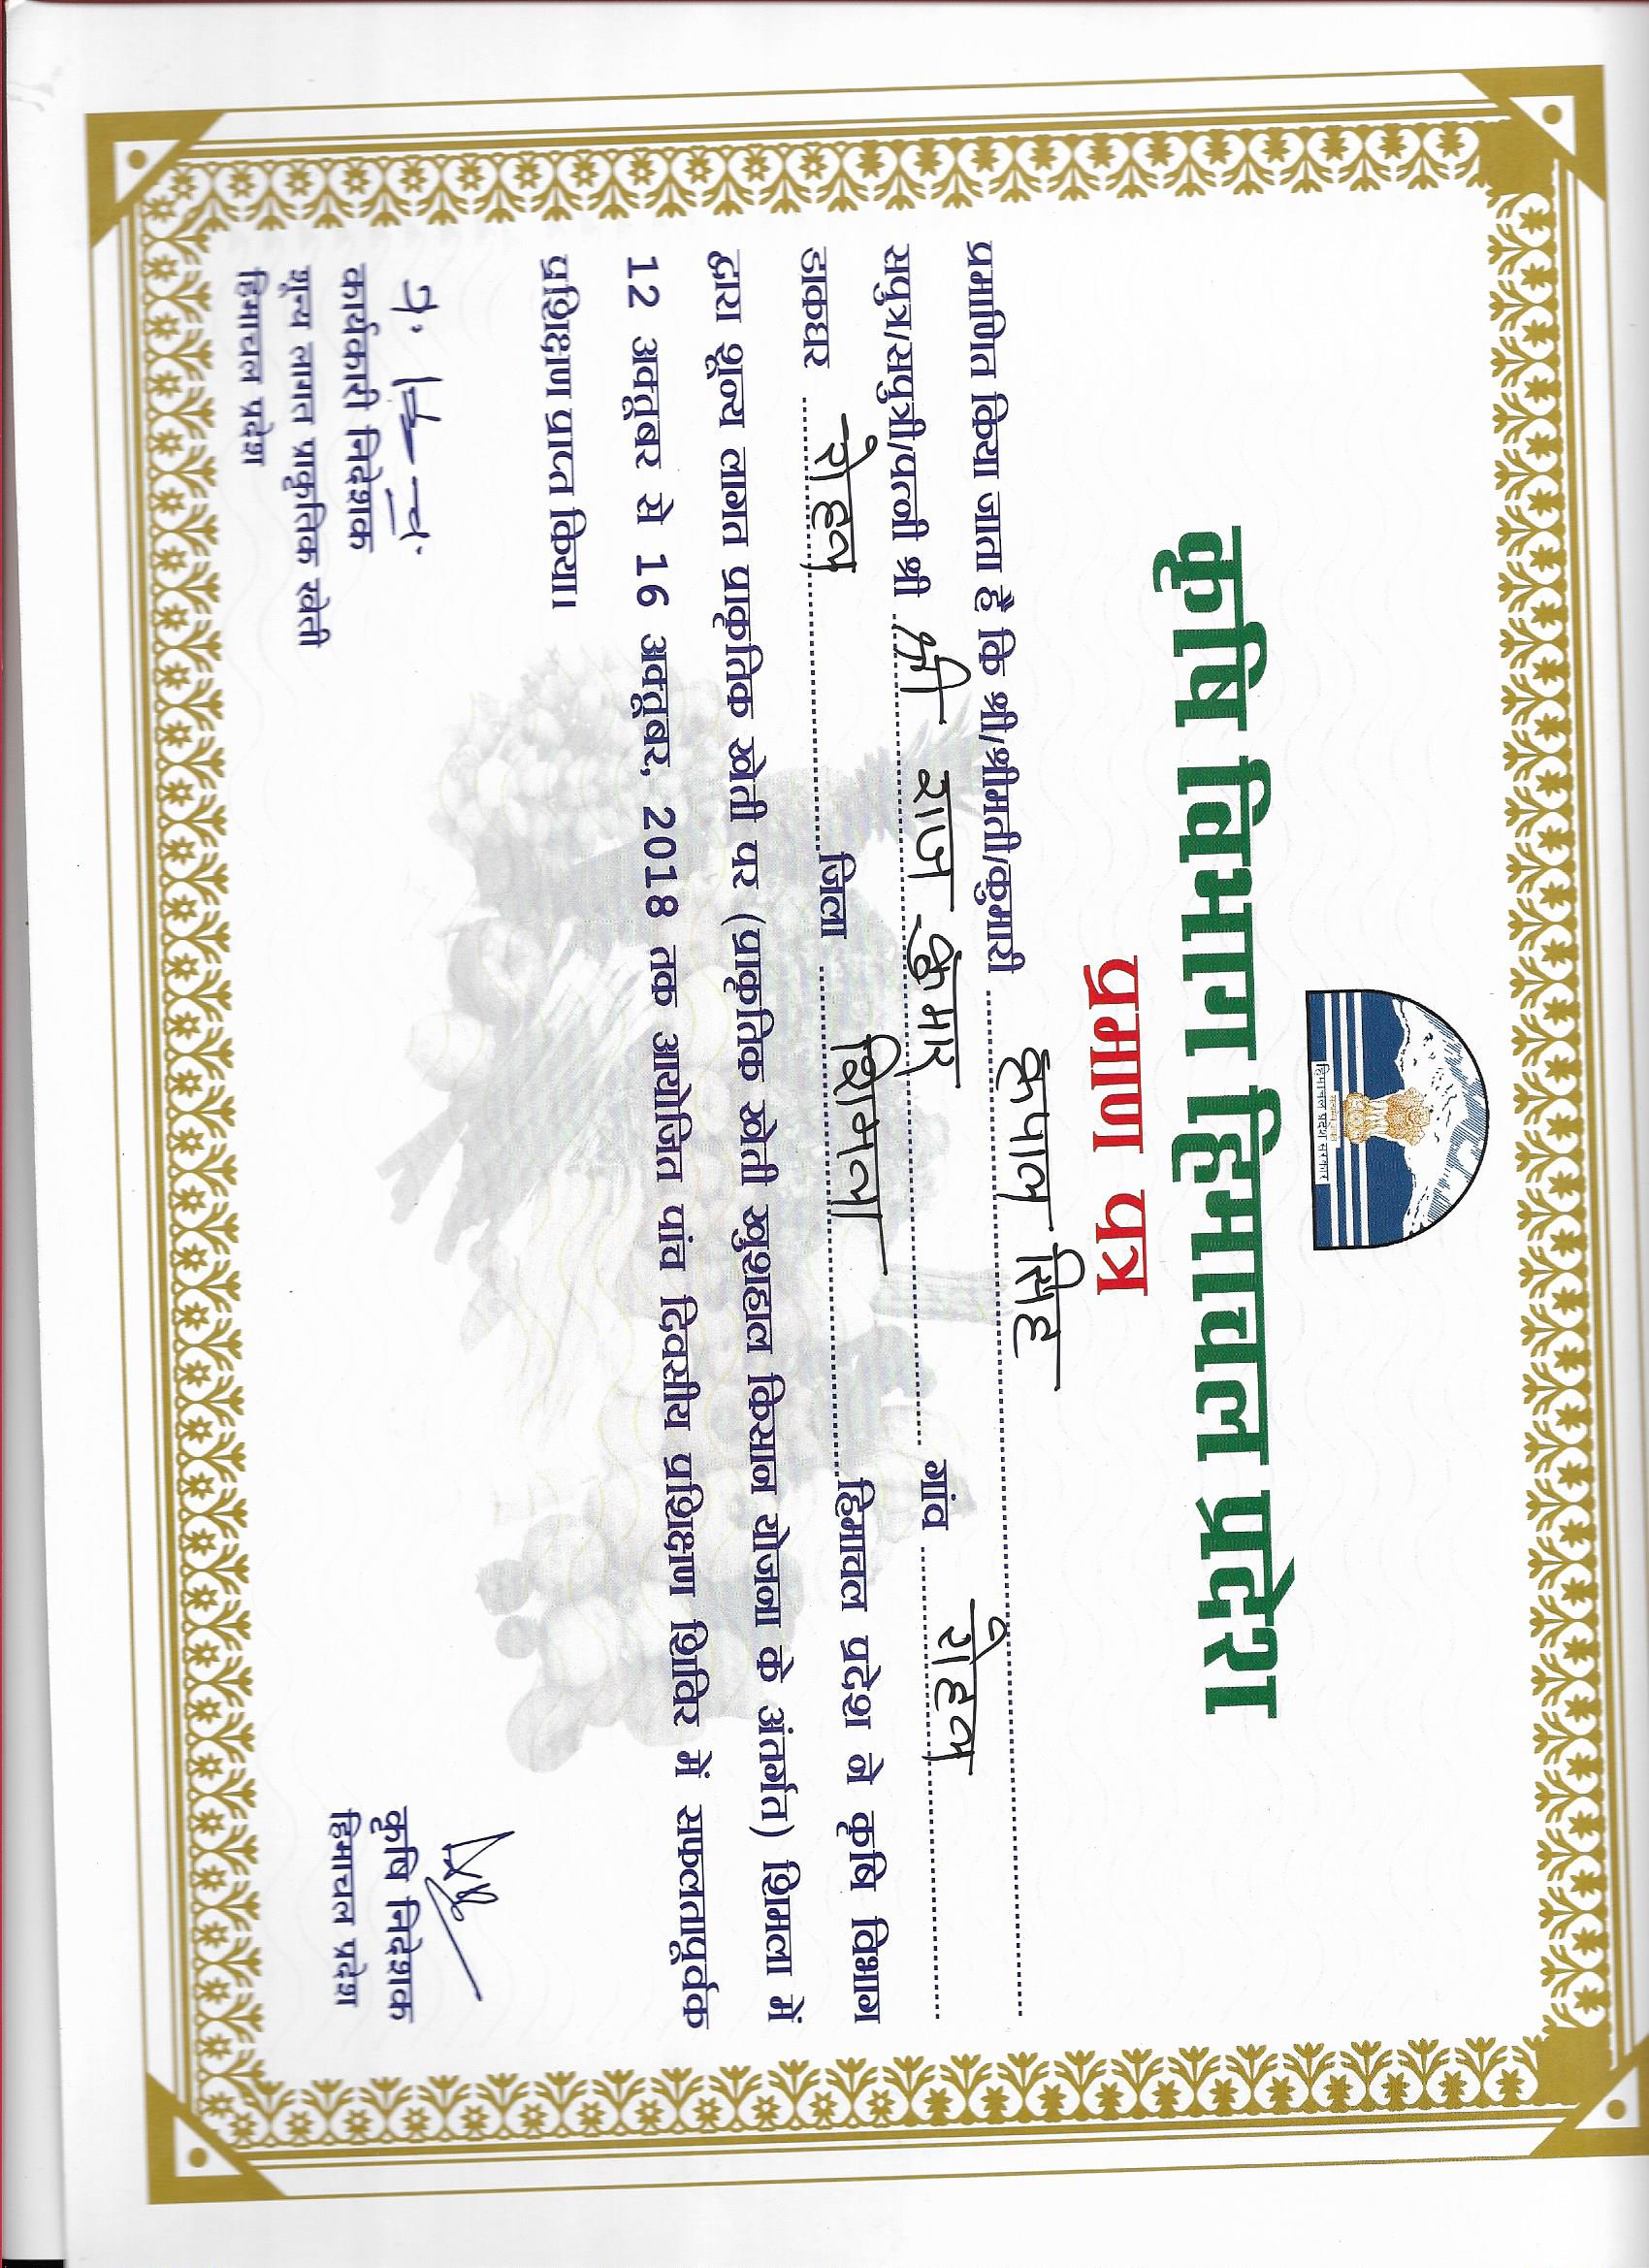 सत्यमेव जयते
हिमाचल प्रदेश सरकार
कृषि विभाग हिमाचल प्रदेश
प्रमाण पत्र
प्रमाणित किया जाता है कि श्री/श्रीमती/कुमारी कृपाल सिंह
सपुत्र/सपुत्री/पत्नी श्री श्री राज कुमार गांव रोहल
डाकघर रोहल जिला शिमला हिमाचल प्रदेश ने कृषि विभाग
द्वारा शून्य लागत प्राकृतिक खेती पर (प्राकृतिक खेती खुशहाल किसान योजना के अंतर्गत) शिमला में
12 अक्तूबर से 16 अक्तूबर, 2018 तक आयोजित पांच दिवसीय प्रशिक्षण शिविर में सफलतापूर्वक
प्रशिक्षण प्राप्त किया।
कार्यकारी निदेशक
शून्य लागत प्राकृतिक खेती
हिमाचल प्रदेश
कृषि निदेशक
हिमाचल प्रदेश